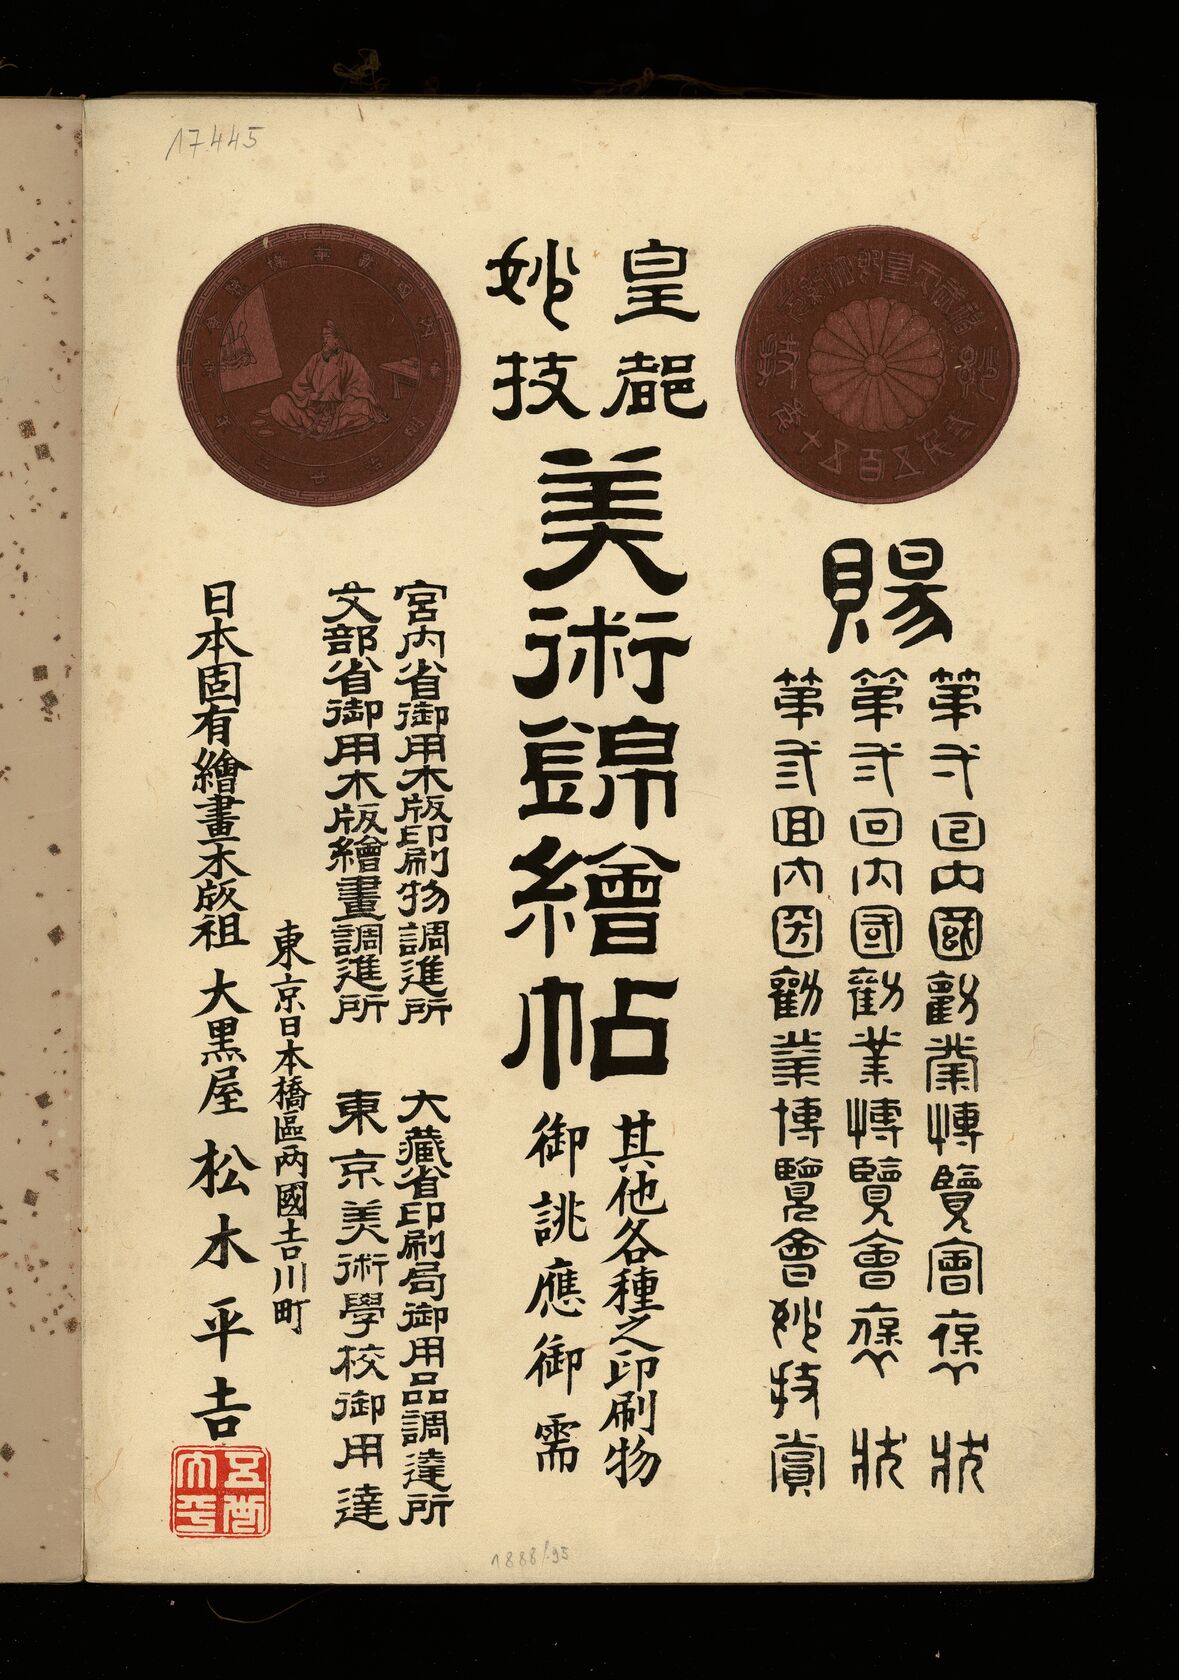 17445
妙技
賜
第弍回内國勸業博覽會褒狀
第弍回内國勸業博覽會褒狀
第弎回内國勸業博覽會妙技賞
皇都
妙技
美術錦繪帖
其他各種之印刷物
御誂應御需
宮内省御用木版印刷物調進所
大藏省印刷局御用品調達所
文部省御用木版繪畫調進所
東京美術學校御用達
東京日本橋區両國吉川町
日本固有繪畫木版祖 大黒屋 松木平吉
1888/95